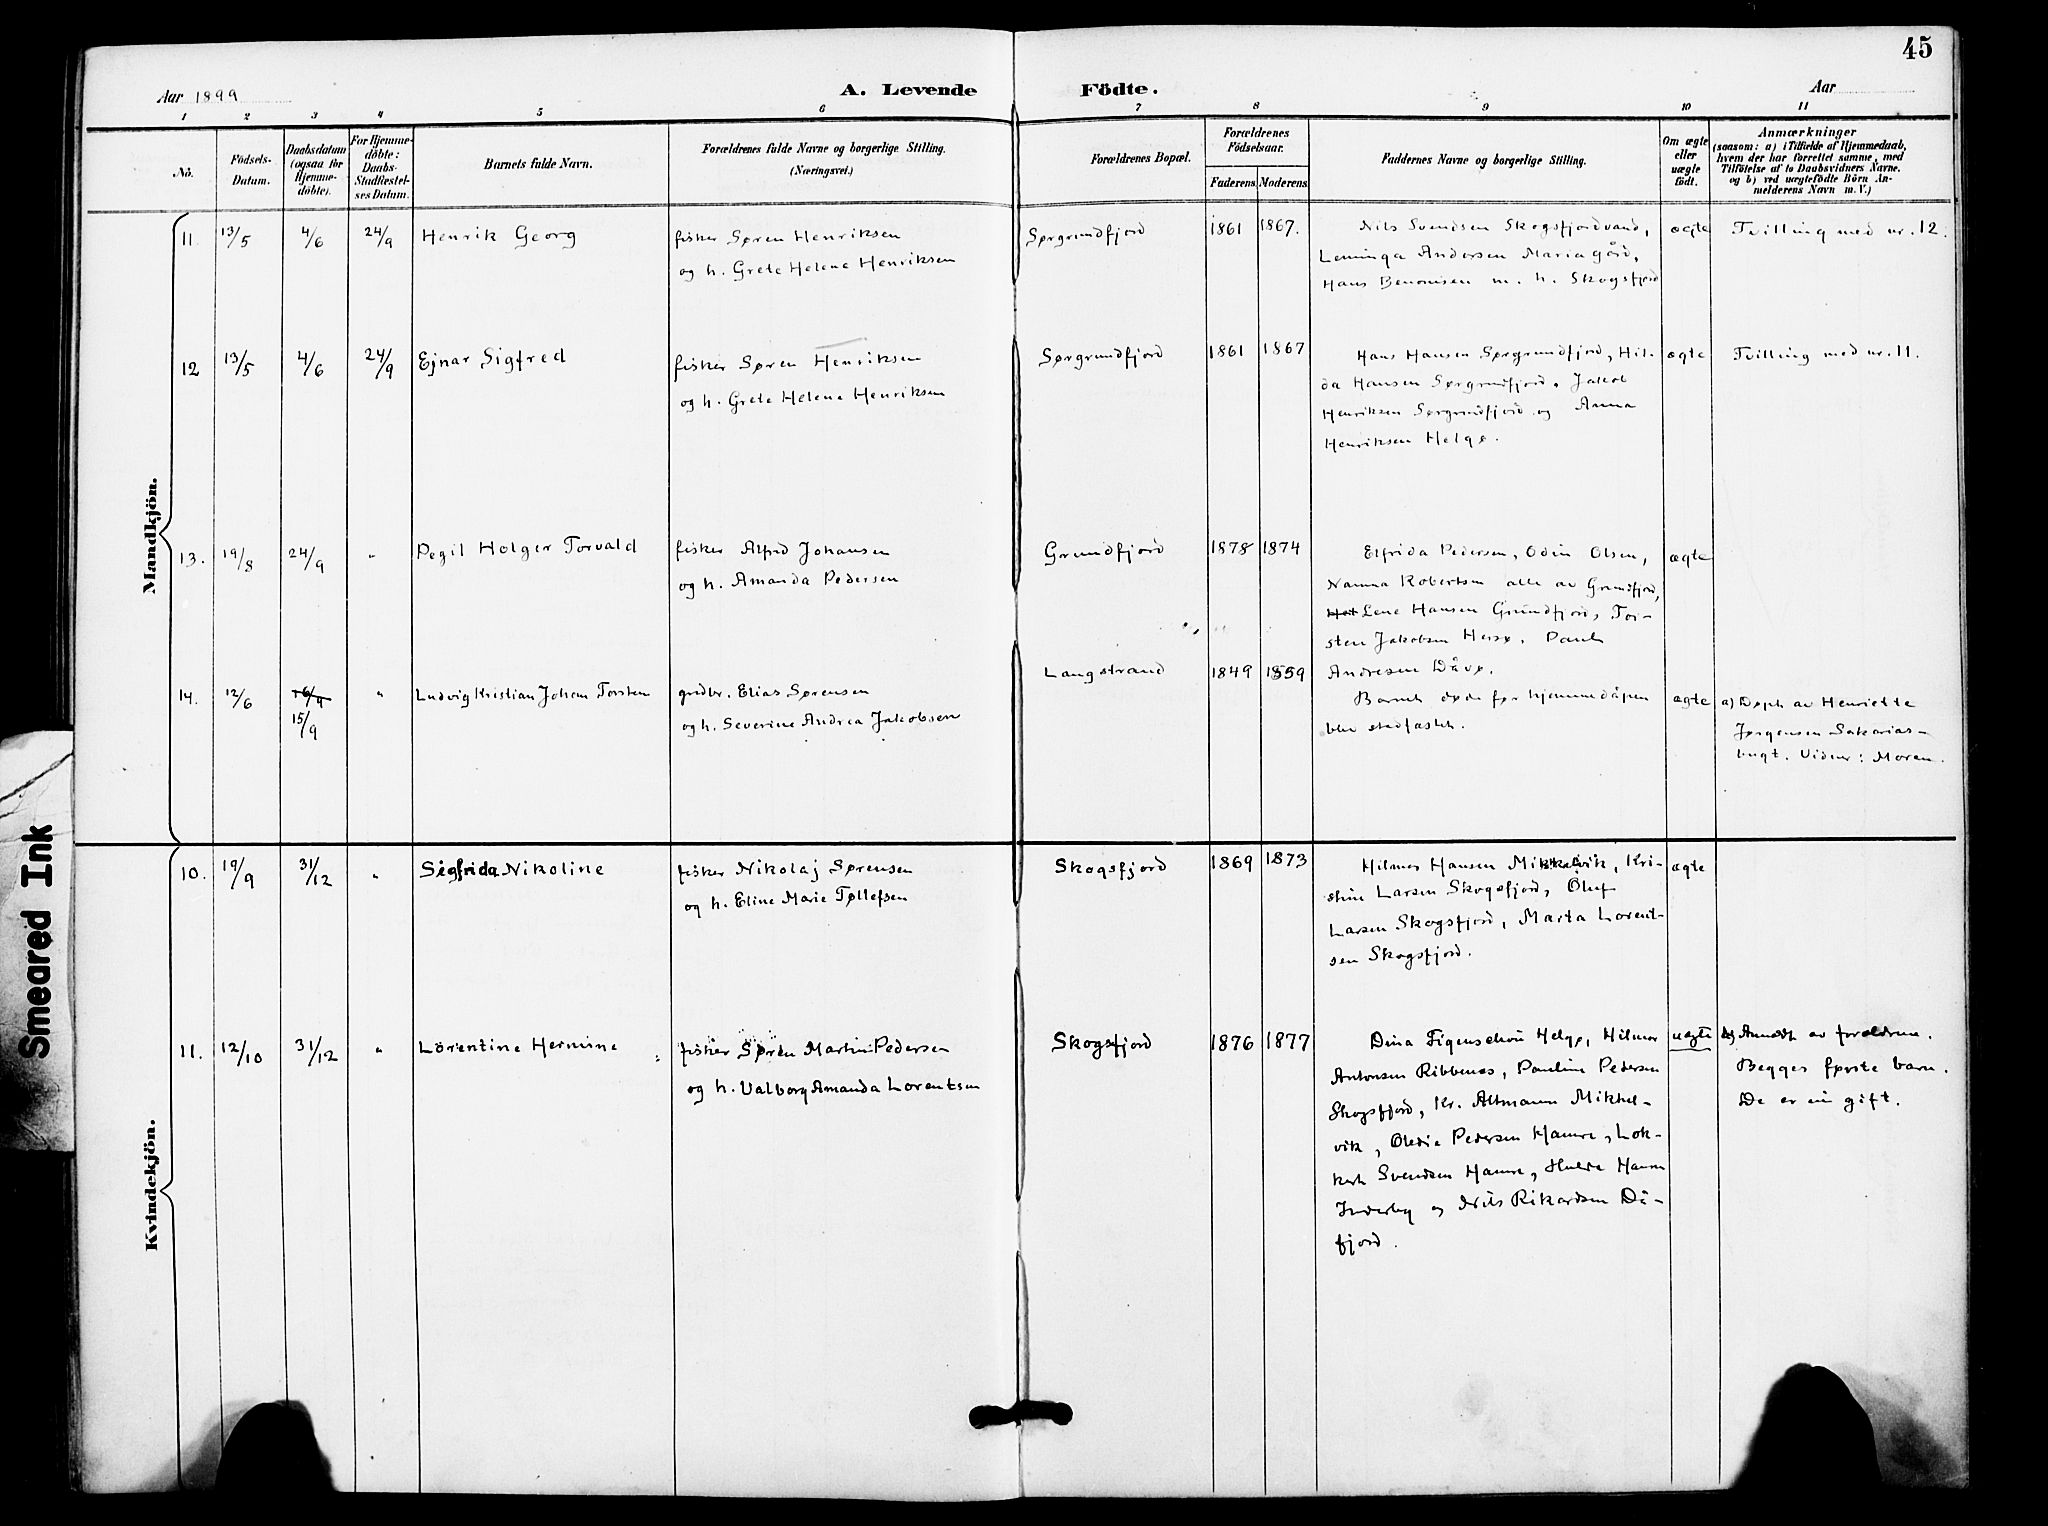 45
Aar 1899
A. Levende Födte.
Aar
1 2 3 4 5 6 7 8 9 10 11
No.
Födsels-Datum.
Daabsdatum (ogsaa för Hjemme-döbte).
For Hjemme-döbte: Daabs-Stadfæstel-ses Datum.
Barnets fulde Navn.
Forældrenes fulde Navne og borgerlige Stilling.
(Næringsvei.)
Forældrenes Bopæl.
Forældrenes Födselsaar.
Faderens Moderens
Faddernes Navne og borgerlige Stilling.
Om ægte eller uægte födt.
Anmærkninger
(saasom: a) i Tilfælde af Hjemmedaab,
hvem der har forrettet samme, med
Tilföielse af to Daabsvidners Navne.
og b) ved uægtefödte Börn An-
melderens Navn m. V.)
Mandkjön.
11. 13/5 4/6 24/9 Henrik Georg
fisker Søren Henriksen
og h. Grete Helene Henriksen
Sørgrundfjord 1861 1867.
Nils Svendsen Skogsfjordvand,
Leminga Andersen Mariagård,
Hans Benonisen m. h. Skogsfjord
ægte
Tvilling med nr. 12.
12 13/5 4/6 24/9 Ejnar Sigfred
fisker Søren Henriksen
og h. Grete Helene Henriksen
Sørgrundfjord 1861 1867
Hans Hansen Sørgrundfjord, Hil-
da Hansen Sørgrundfjord, Jakob
Henriksen Sørgrundfjord og Anna
Henriksen Helgø.
ægte
Tvilling med nr. 11.
13. 19/8 24/9 " Pegil Holger Torvald
fisker Alfred Johansen
og h. Amanda Pedersen
Grundfjord 1878 1874
Elfrida Pedersen, Odin Olsen,
Nanna Robertsen alle av Grundfjord,
Lene Hansen Grundfjord, Tor-
sten Jakobsen Hersø, Paul
Andresen Dåvø.
ægte
14. 12/6 15/9 " Ludvig Kristian Johan Torsten
grdbr. Elias Sørensen
og h. Severine Andrea Jakobsen
Langstrand 1849 1859
Barnet døde før hjemmedåpen
blev stadfæstet.
ægte
a) Døpt av Henriette
Jørgensen Sakarias-
bugt. Vidner: Moren.
Kvindekjön.
10. 19/9 31/12 " Sigfrida Nikoline
fisker Nikolaj Sørensen
og h. Eline Marie Tøllefsen
Skogsfjord 1869 1873
Hilmer Hansen Mikkelvik, Kri-
stine Larsen Skogsfjord, Oluf
Larsen Skogsfjord, Marta Lorent-
sen Skogsfjord.
ægte
11. 12/10 31/12 " Lorentine Hermine
fisker Søren Martin Pedersen
og h. Valborg Amanda Lorentsen
Skogsfjord 1876 1877
Dina Figenschou Helgø, Hilmer
Antonsen Ribbenes, Pauline Pedersen
Skogsfjord, Kr. Altmann Mikkel-
vik, Oledie Pedersen Hamre, Lok-
kert Svendsen Hamre, Hulda Hansen
Inderby og Nils Rikardsen Då-
fjord.
uægte
b) Anmeldt av forældrene.
Begges første barn.
De er ein gift.
Smeared Ink